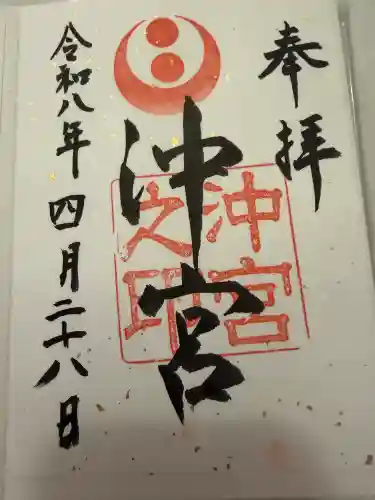 奉拝
沖宮
沖宮
之印
令和八年四月二十八日